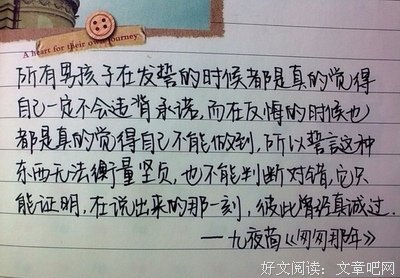 A heart for their own journey
所有男孩子在发誓的时候都是真的觉得
自己一定不会违背承诺，而在反悔的时候也
都是真的觉得自己不能做到，所以誓言这种
东西无法衡量坚贞，也不能判断对错，它只
能证明，在说出来的那一刻，彼此曾经真诚过.
——九夜茴《匆匆那年》
好文阅读：文章吧网